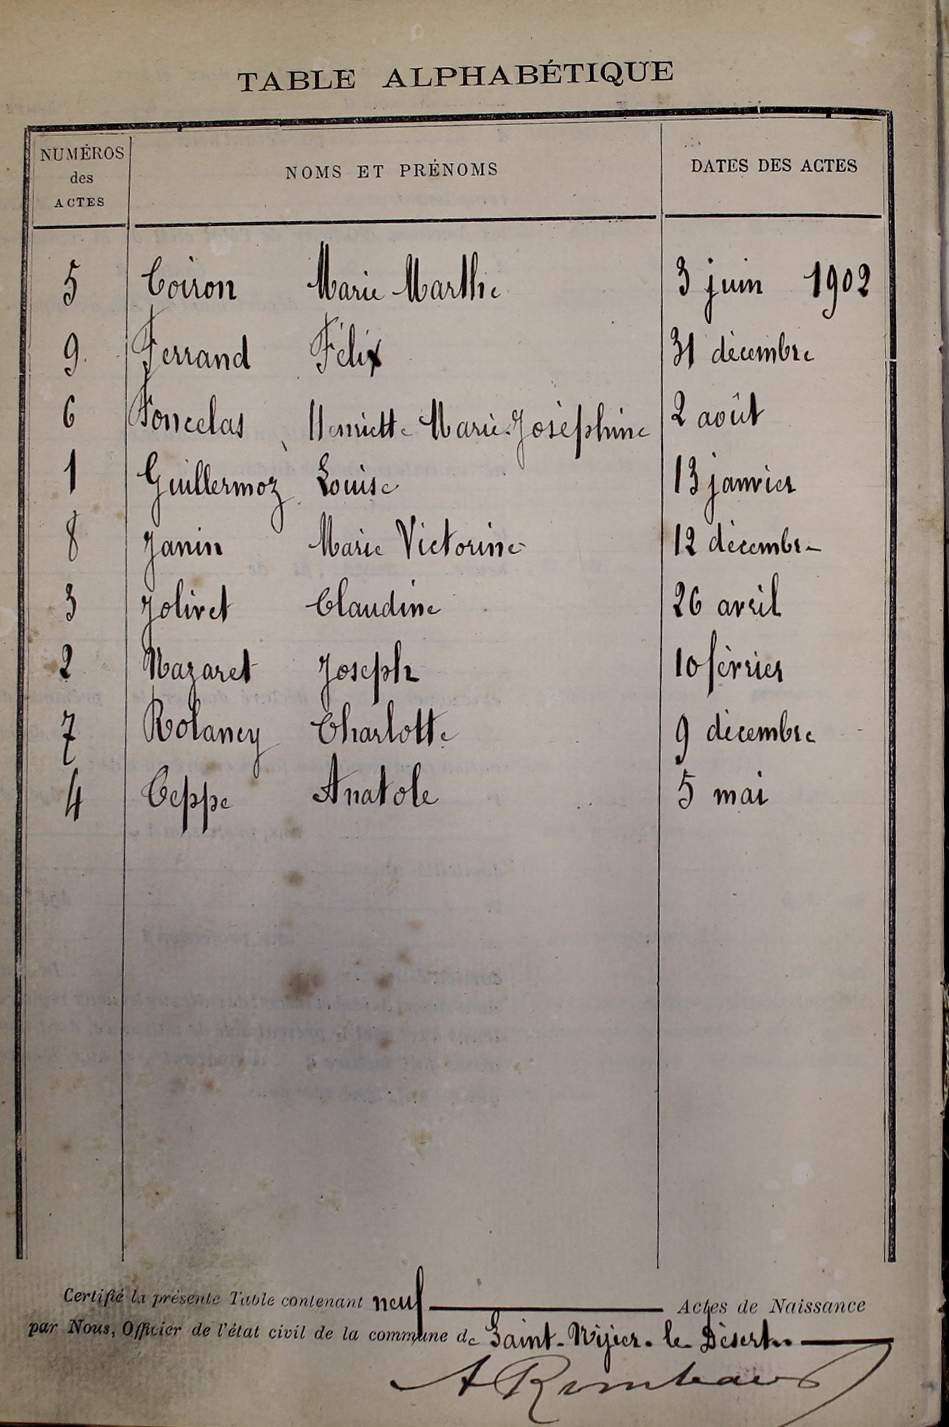 TABLE ALPHABÉTIQUE
NUMÉROS des ACTES NOMS ET PRÉNOMS DATES DES ACTES
5 Coiron Marie Marthe 3 juin 1902
9 Ferrand Félix 31 décembre
6 Fonclas Henriette Marie-Joséphine 2 août
1 Guillermoz Louise 13 janvier
8 Janin Marie Victorine 12 décembre
3 Jolivet Claudine 26 avril
2 Nazaret Joseph 10 février
7 Rolancy Charlotte 9 décembre
4 Ceppe Anatole 5 mai
Certifié la présente Table contenant neuf Actes de Naissance
par Nous, Officier de l'état civil de la commune de Saint-Nizier-le-Désert